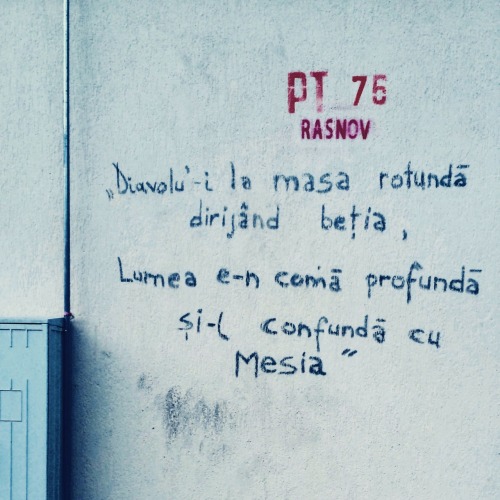 PT 76
RASNOV
„Diavolu'-i la masa rotundă
dirijând beția,
Lumea e-n comă profundă
și-l confundă cu
Mesia”